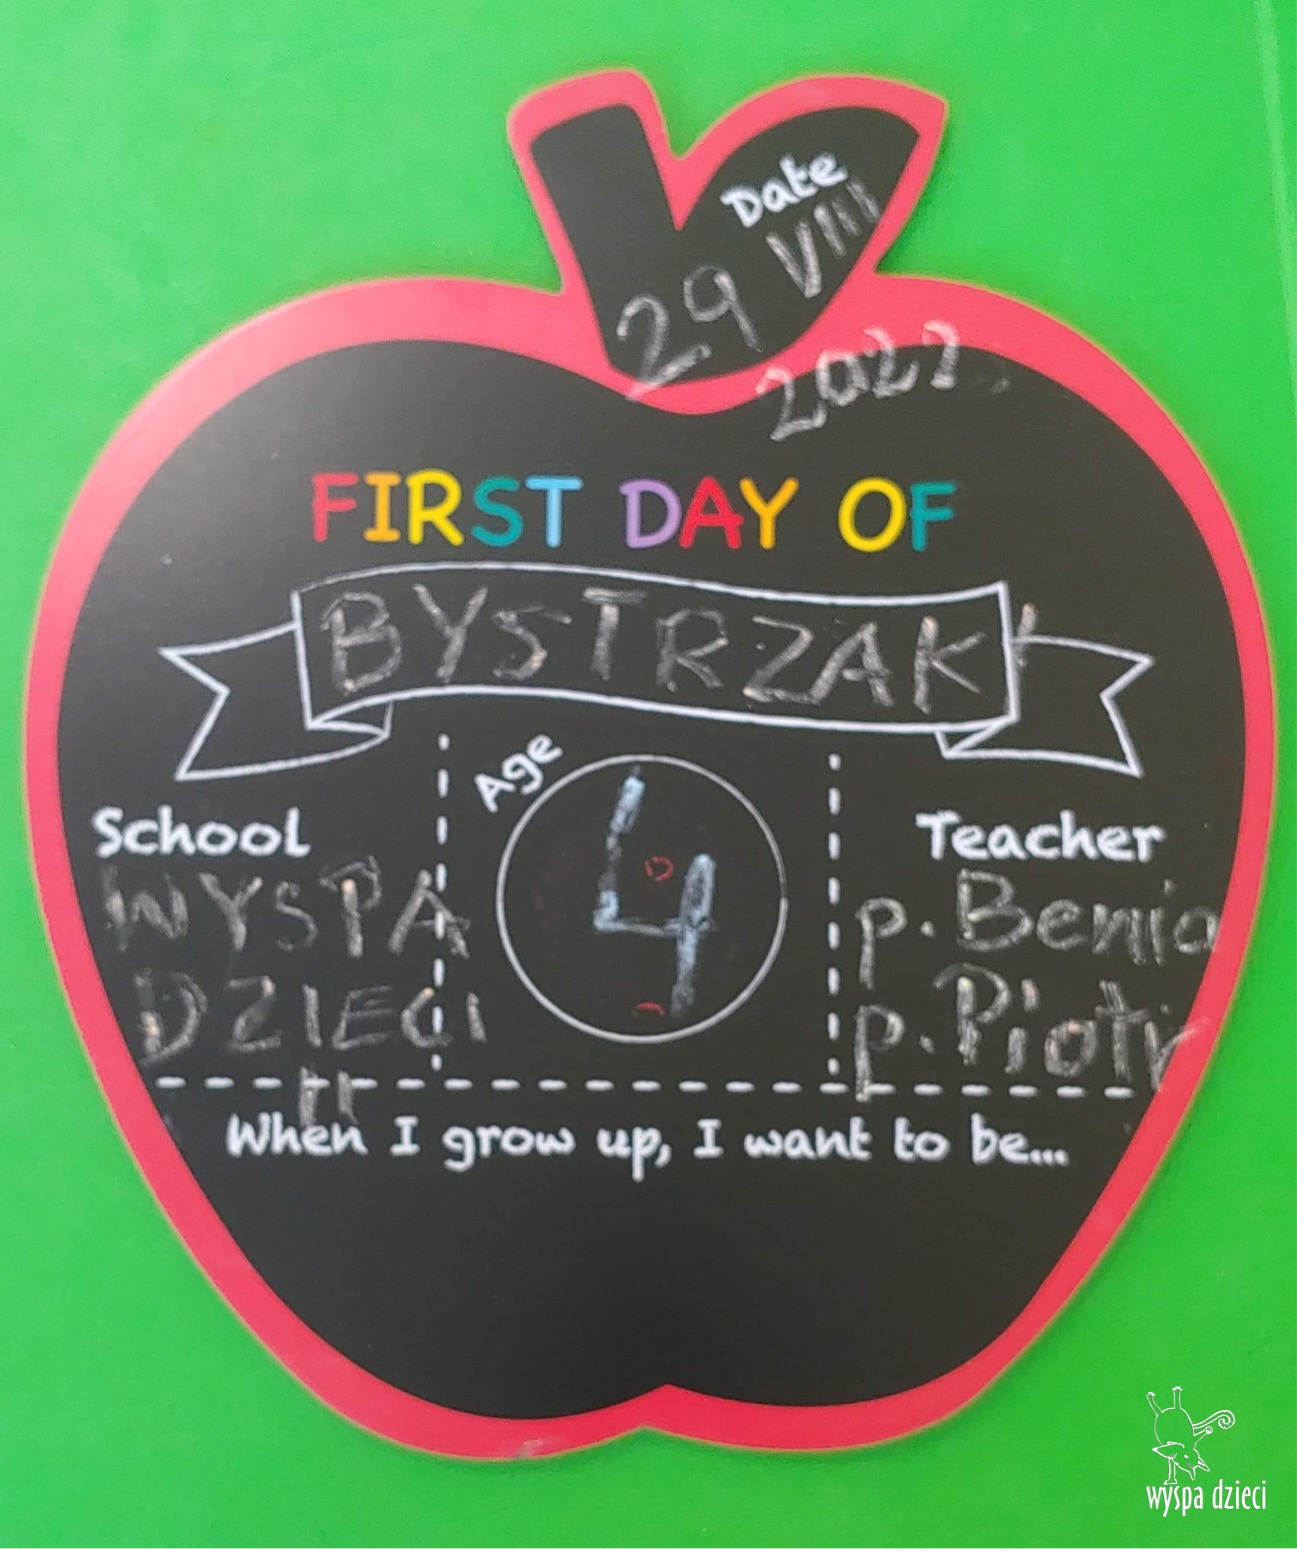 Date
29 VIII
2022
FIRST DAY OF
BYSTRZAKI
School
WYSPA
DZIECI
Age
4
Teacher
p. Benia
p. Piotr
When I grow up, I want to be...
wyspa dzieci